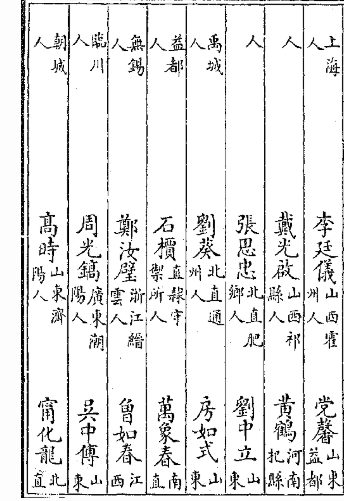 上海人 李廷儀 山西霍州人 党馨 山東益都
人 戴光啟 山西祁縣人 黃鶴 河南杞縣
人 張思忠 北直肥鄉人 劉中立 山東
禹城人 劉葵 北直通州人 房如式 山東
益都人 石檟 直隸守禦所人 萬象春 南直
無錫人 鄭汝璧 浙江縉雲人 曾如春 江西
臨川人 周光鎬 廣東潮陽人 吳中傳 山東
朝城人 高時 山東濟陽人 甯化龍 北直